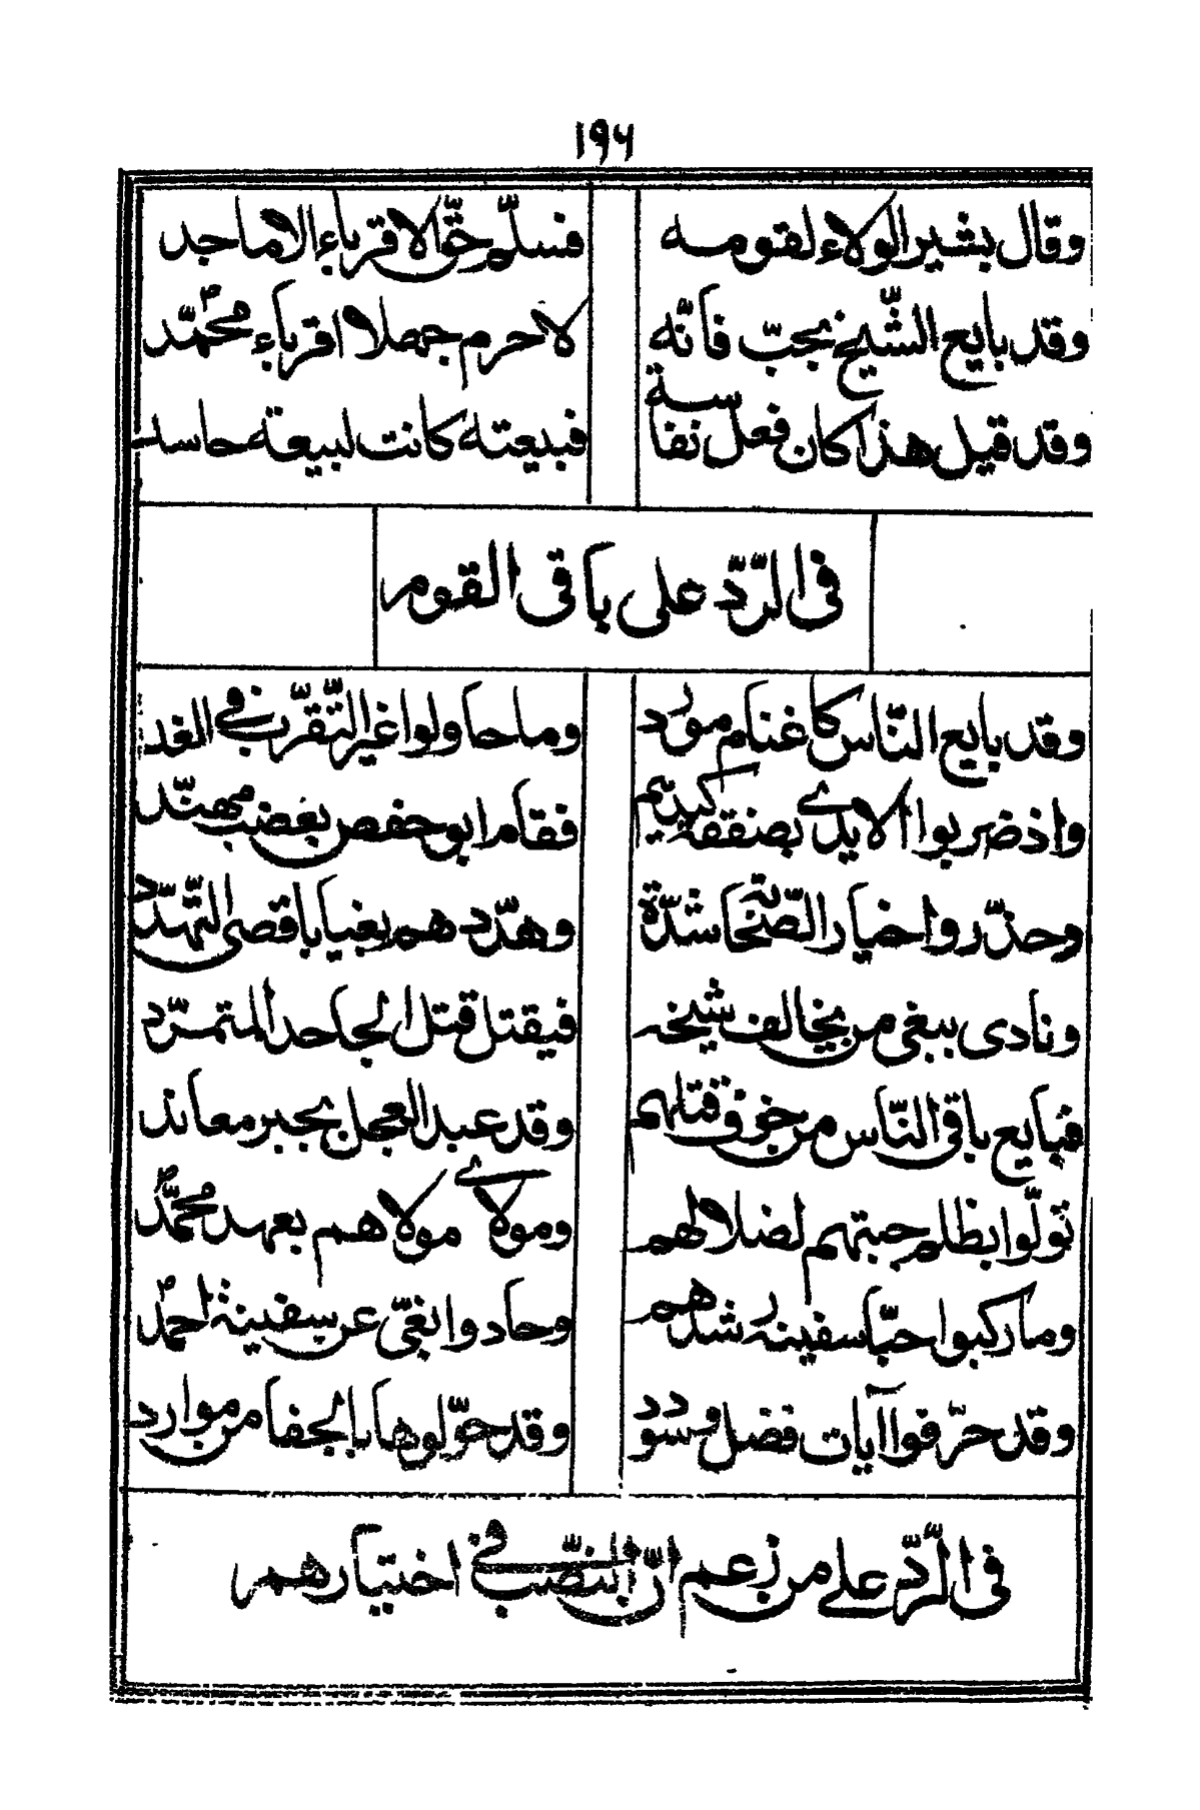 ١٩٦
وقال بشير الولاء لقومه فسلّم حقّ الاقرباء الاماجد
وقد بايع الشّيخ بحبّ فانّه لاحرم جهلا اقرباء محمّد
وقد قيل هذا كان فعل نفاسة فبيعته كانت لبيعة حاسد
فى الرّد على باقى القوم
وقد بايع النّاس كاغنام مورد وما حاولوا غير التّقرّب فى الغد
واذ ضربوا الايدى بصفقة كيديهم فقام ابو حفص بغضب مهنّد
وحذّروا خيار الصّحابة شدّة وهدّد هم بغيا باقصى التّهدّد
ونادى ببغى من يخالف شيخه فيقتل قتل الجاحد المتمرّد
فبايع باقى النّاس من خوف قتلهم وقد عبد العجل بجبر معاند
تولّوا بظلم حبتهم لضلالهم ومولاى مولاهم بعهد محمّد
وما ركبوا حبّا سفينة رشدهم وحادوا بغىّ عن سفينة احمد
وقد حرّفوا آيات فضل وسودد وقد حوّلوها بالجفا من موارد
فى الرّد على من زعم انّ النصّب فى اختيارهم